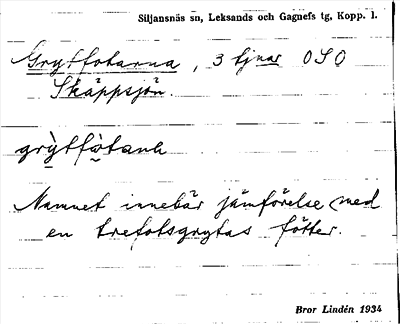 Siljansnäs sn, Leksands och Gagnefs tg, Kopp. l.
Grytfotarna, 3 tjnar OSO
Skäppsjön.
grỳtfòtana
Namnet innebär jämförelse med
en trefotsgrytas fötter.
Bror Lindén 1934